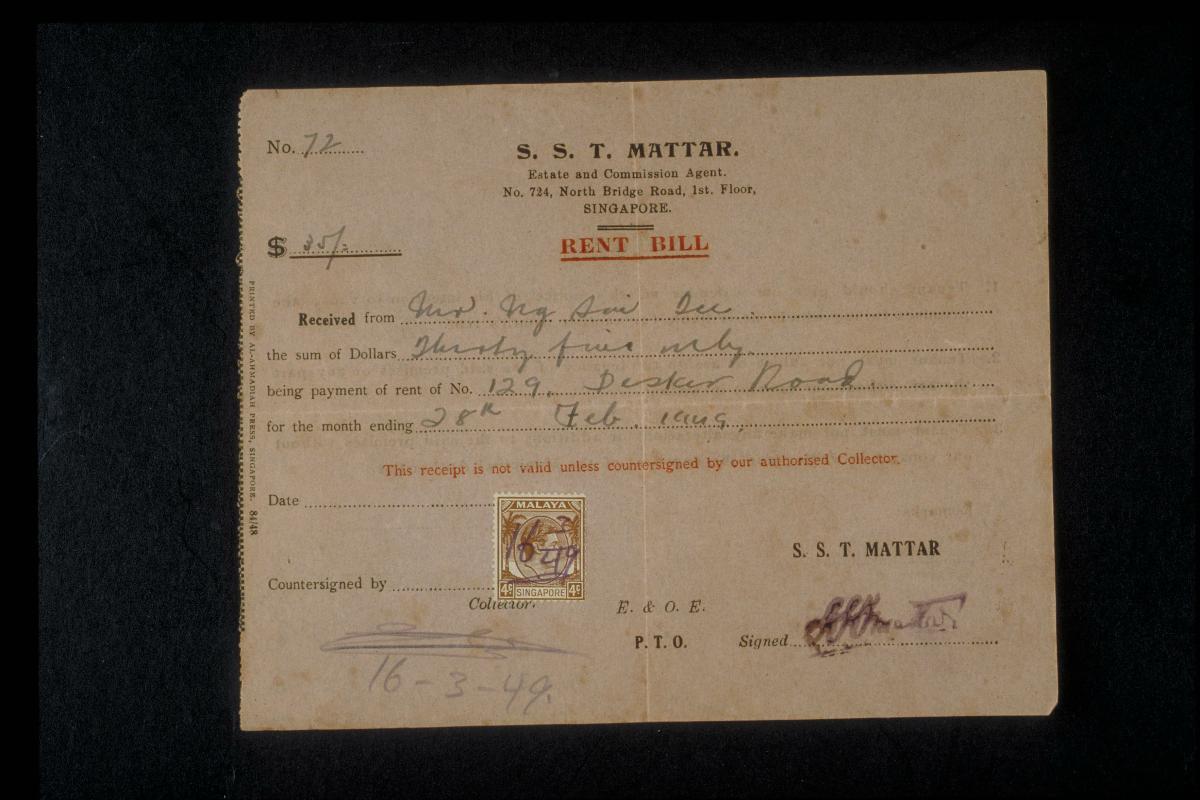 No. 72
S. S. T. MATTAR.
Estate and Commission Agent.
No. 724, North Bridge Road, 1st. Floor,
SINGAPORE.
$ 35/-
RENT BILL
Received from Mr. Ng
the sum of Dollars Thirty five only
being payment of rent of No. 129, Desker Road.
for the month ending 28th Feb. 1949
This receipt is not valid unless countersigned by our authorised Collector.
Date
MALAYA
16-3-49
4c SINGAPORE 4c
S. S. T. MATTAR
Countersigned by
Collector.
E. & O. E.
P. T. O.
Signed SST Mattar
16-3-49.
PRINTED BY AL-AHMADIAH PRESS, SINGAPORE. 84/48